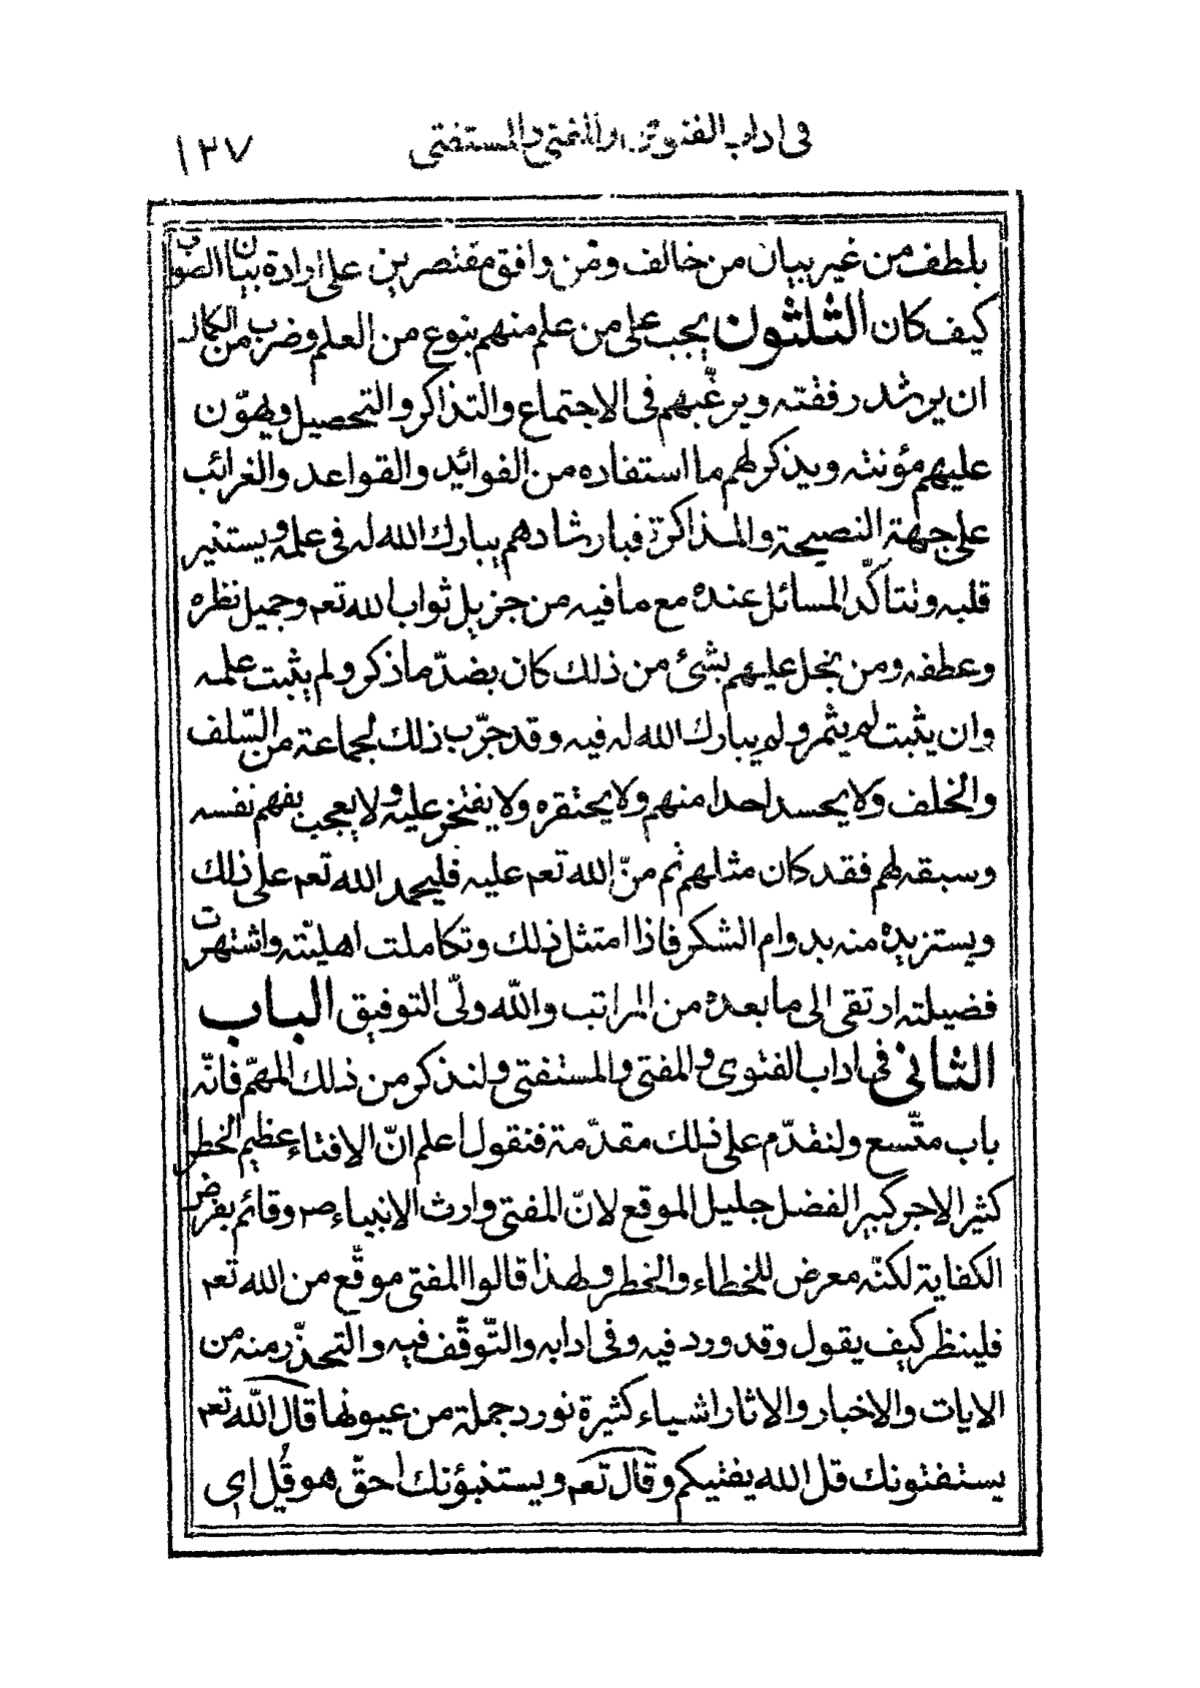 في اداب الفتوى والمفتي والمستفتى
١٣٧
بلطف من غير بيان من خالف ومن وافق مقتصرين على ارادة بيان الصواب
كيف كان الثلثون يجب على من علم منهم بنوع من العلم وضرب من الكمال
ان يرشد رفقته ويرغّبهم في الاجتماع والتذاكر والتحصيل ويهوّن
عليهم مؤنته ويذكر لهم ما استفاده من الفوائد والقواعد والغرائب
على جهة النصيحة والمذاكرة فبارشادهم يبارك الله له في علمه ويستنير
قلبه وتتأكّد المسائل عنده مع ما فيه من جزيل ثواب الله تعم وجميل نظره
وعطفه ومن بخل عليهم بشئ من ذلك كان بضدّ ما ذكر ولم يثبت علمه
وان يثبت لم يثمر ولم يبارك الله له فيه وقد جرّب ذلك لجماعة من السّلف
والخلف ولا يحسد احدا منهم ولا يحتقره ولا يفتخر عليه ولا يعجب بفهم نفسه
وسبقه لهم فقد كان مثلهم ثم منّ الله تعم عليه فليحمد الله تعم على ذلك
ويستزيده منه بدوام الشكر فاذا امتثل ذلك وتكاملت اهليّته واشتهرت
فضيلته ارتقى الى ما بعده من المراتب والله ولىّ التوفيق الباب
الثاني في اداب الفتوى والمفتي والمستفتي ولنذكر من ذلك المهمّ فانّه
باب متّسع ولنقدّم على ذلك مقدّمة فنقول اعلم انّ الافتاء عظيم الخطر
كثير الاجر كبير الفضل جليل الموقع لانّ المفتي وارث الانبياء ص وقائم بفرض
الكفاية لكنّه معرض للخطاء والخطر ولهذا قالوا المفتي موقّع من الله تعم
فلينظر كيف يقول وقد ورد فيه وفي ادابه والتّوقّف فيه والتحذّر منه من
الايات والاخبار والاثار اشياء كثيرة نورد جملة من عيونها قال الله تعم
يستفتونك قل الله يفتيكم وقال تعم ويستنبؤنك احقّ هو قل اى